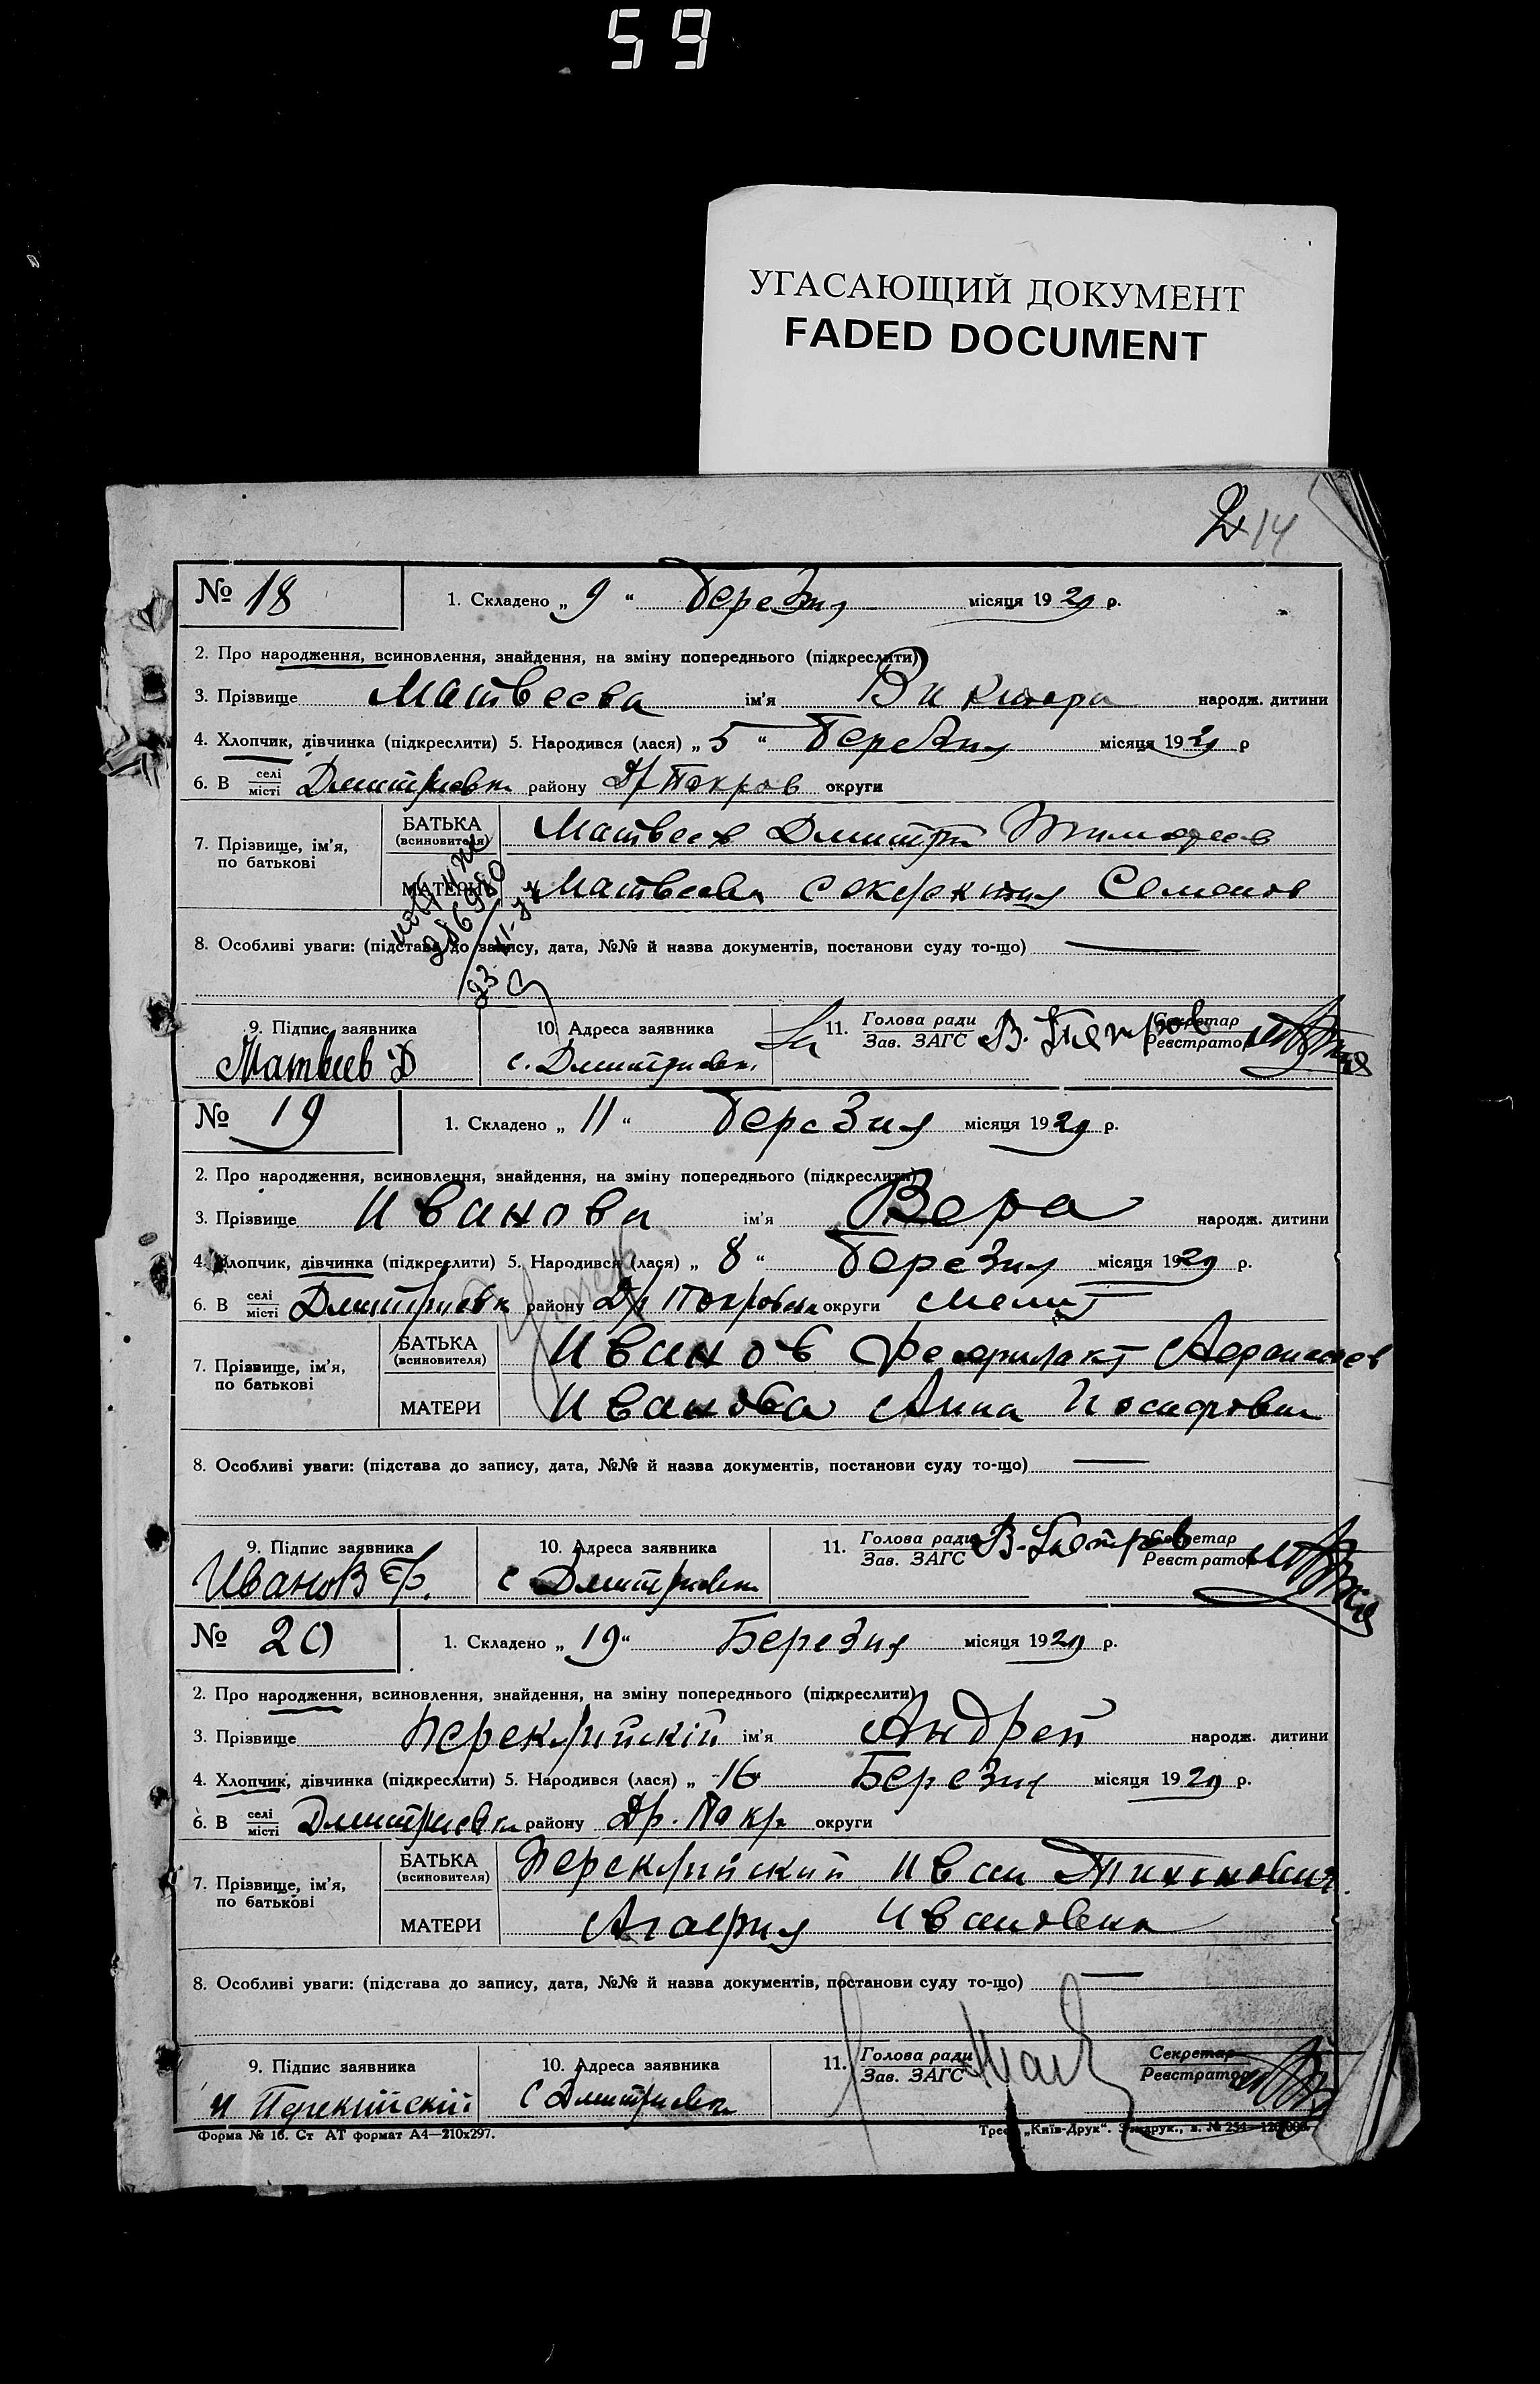 59
УГАСАЮЩИЙ ДОКУМЕНТ
FADED DOCUMENT
14
№ 18
1. Складено „ 9 “ Березня місяця 1929 р.
2. Про народження, всиновлення, знайдення, на зміну попереднього (підкреслити)
3. Прізвище Матвеева ім'я Виктора народж. дитини
4. Хлопчик, дівчинка (підкреслити) 5. Народився (лася) „ 5 “ Березня місяця 1929 р
6. В селі місті Дмитриевка району Др Покров округи
7. Прізвище, ім'я, по батькові
БАТЬКА (всиновителя) Матвеев Дмитрий Тимофеев
МАТЕРИ Матвеева Семенов
8. Особливі уваги: (підстава до запису, дата, №№ й назва документів, постанови суду то-що)
9. Підпис заявника
10. Адреса заявника
11. Голова ради Зав. ЗАГС В. Петров
Секретар Реєстратор
Матвеев Д
с. Дмитриевка
№ 19
1. Складено „ 11 “ Березня місяця 1929 р.
2. Про народження, всиновлення, знайдення, на зміну попереднього (підкреслити)
3. Прізвище Иванова ім'я Вера народж. дитини
4. Хлопчик, дівчинка (підкреслити) 5. Народився (лася) „ 8 “ Березня місяця 1929 р.
6. В селі місті Дмитриевка району Др Покровск округи Мелит
7. Прізвище, ім'я, по батькові
БАТЬКА (всиновителя) Иванов Феофилакт Афанасьев
МАТЕРИ Иванова Анна Иосифовна
8. Особливі уваги: (підстава до запису, дата, №№ й назва документів, постанови суду то-що)
9. Підпис заявника
10. Адреса заявника
11. Голова ради Зав. ЗАГС В. Петров
Секретар Реєстратор
Иванов Ф.
с Дмитриевка
№ 20
1. Складено „ 19 “ Березня місяця 1929 р.
2. Про народження, всиновлення, знайдення, на зміну попереднього (підкреслити)
3. Прізвище Перекрийскій ім'я Андрей народж. дитини
4. Хлопчик, дівчинка (підкреслити) 5. Народився (лася) „ 16 Березня місяця 1929 р.
6. В селі місті Дмитриевка району Др. Покр округи
7. Прізвище, ім'я, по батькові
БАТЬКА (всиновителя) Перекрийский Иван Тихонович
МАТЕРИ Агафия Ивановна
8. Особливі уваги: (підстава до запису, дата, №№ й назва документів, постанови суду то-що)
9. Підпис заявника
10. Адреса заявника
11. Голова ради Зав. ЗАГС
Секретар Реєстратор
И
с Дмитриевка
Форма № 16. Ст АТ формат А4—210х297.
Трест „Київ-Друк“.